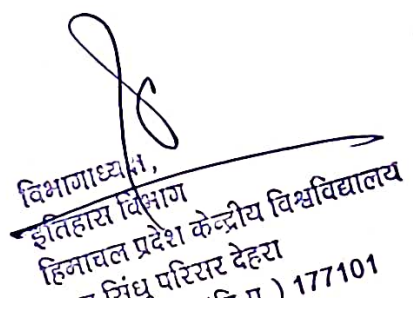 विभागाध्यक्ष,
इतिहास विभाग
हिमाचल प्रदेश केन्द्रीय विश्वविद्यालय
सिंधु परिसर देहरा
) 177101